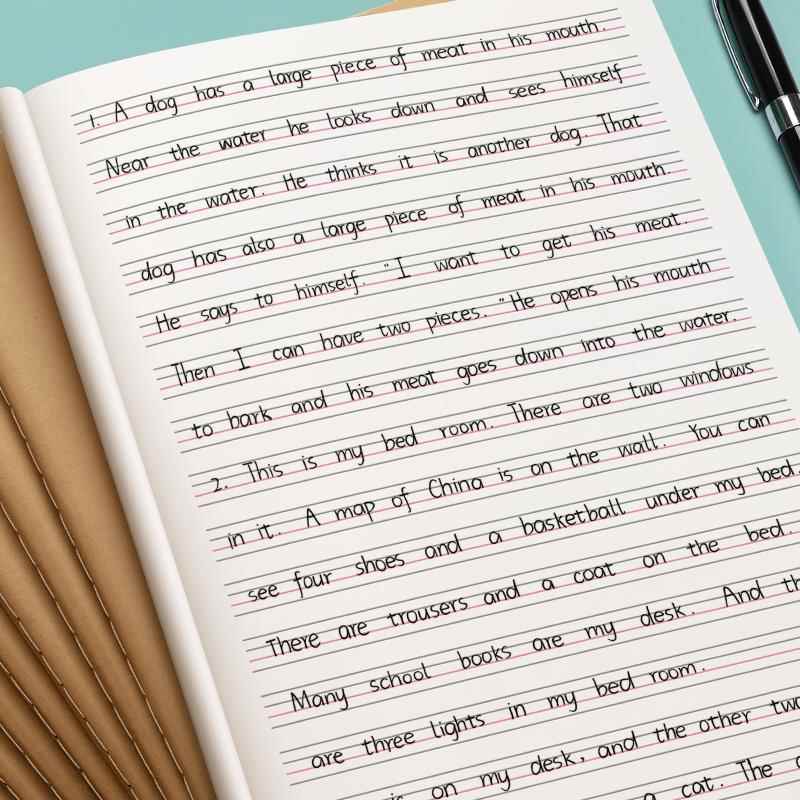 1. A dog has a large piece of meat in his mouth.
Near the water he looks down and sees himself
in the water. He thinks it is another dog. That
dog has also a large piece of meat in his mouth.
He says to himself. "I want to get his meat.
Then I can have two pieces. "He opens his mouth
to bark and his meat goes down into the water.
2. This is my bed room. There are two windows
in it. A map of China is on the wall. You can
see four shoes and a basketball under my bed.
There are trousers and a coat on the bed.
Many school books are my desk. And
are three lights in my bed room.
is on my desk, and the other
a cat. The